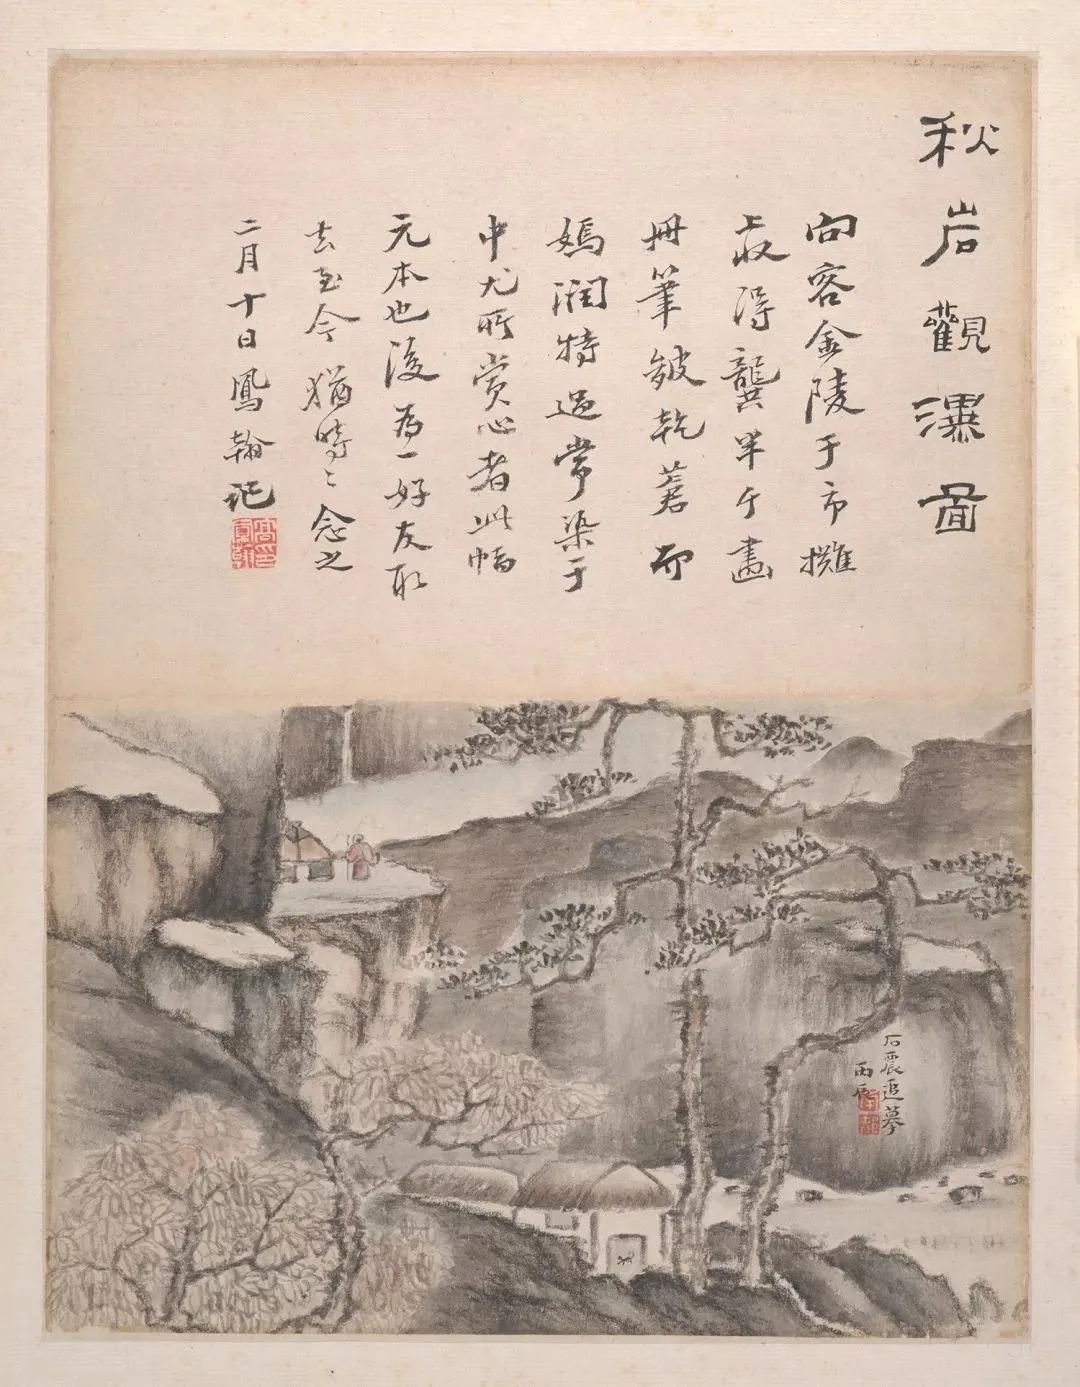 秋岩觀瀑圖
向客金陵于市攤
收得龔半千畫
冊筆皴乾蒼而
嫣潤特過常染于
中尤所賞心者此幅
元本也後為一好友取
去至今猶時〻念之
二月十日鳳翰記
高鳳翰印
石震追摹
丙辰